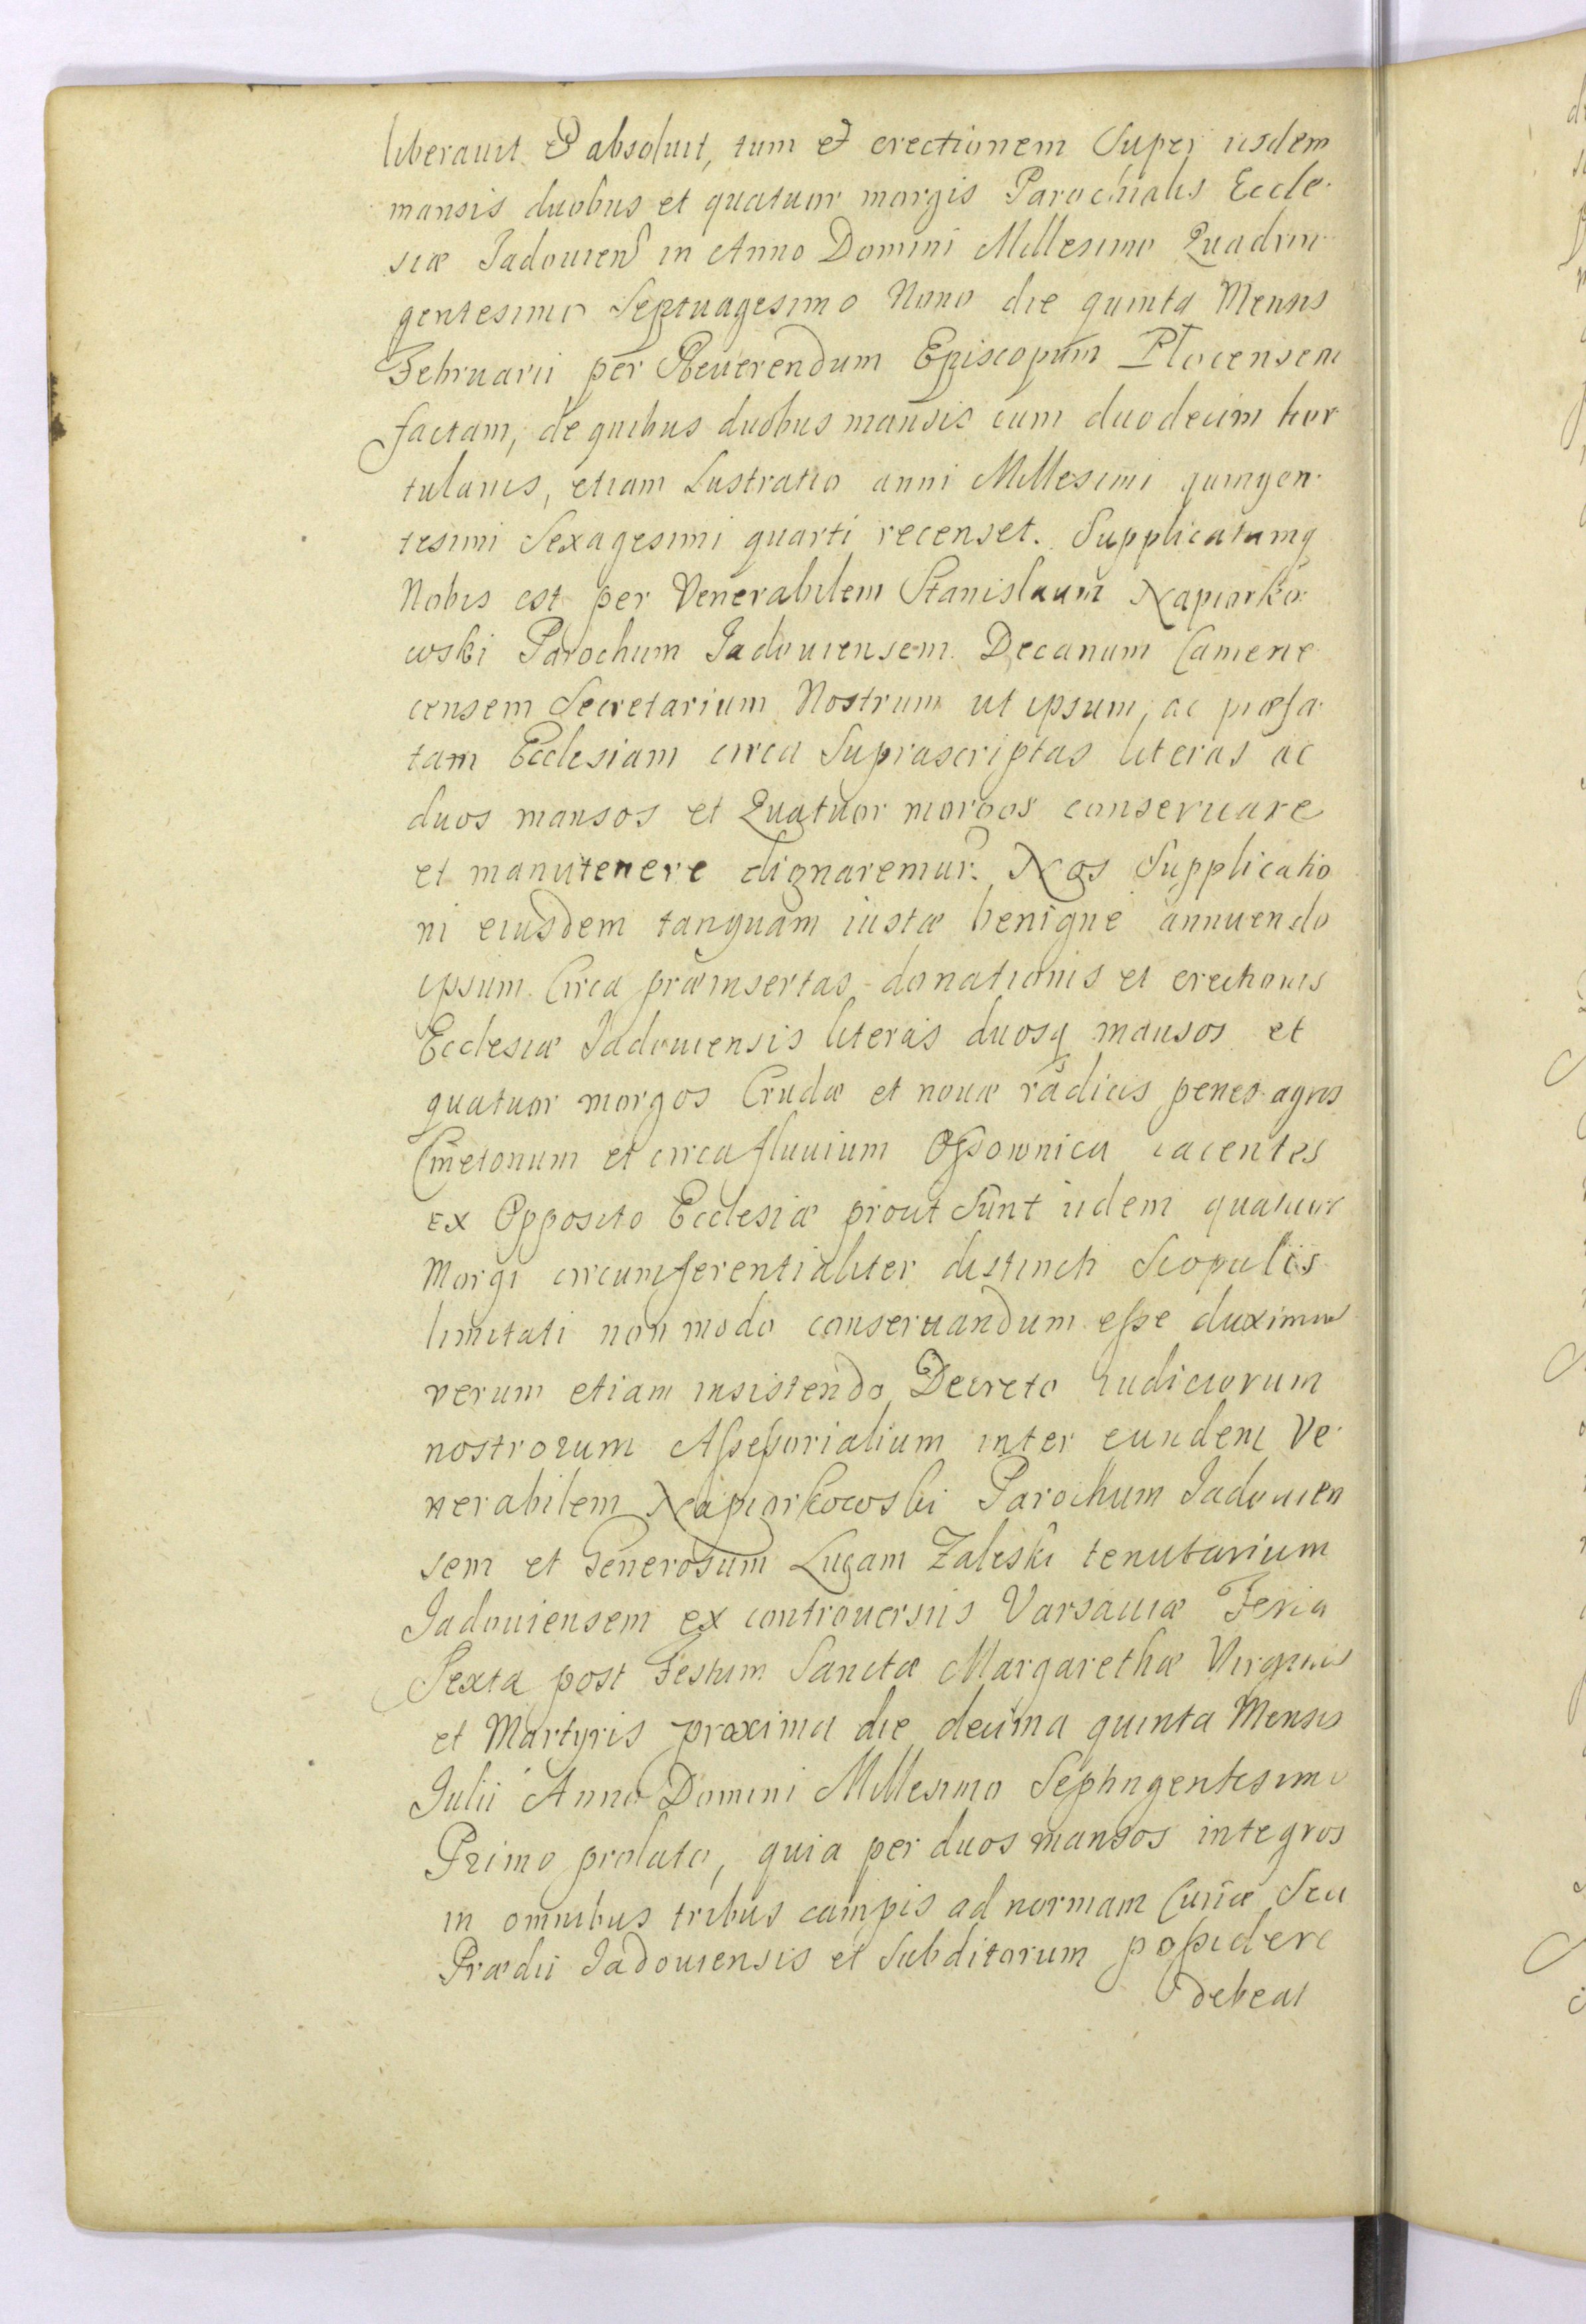 liberauit & absoluit, tum et erectionem Super iisdem
mansis duobus et quatuor morgis Parochialis Eccle-
siæ Jadouiens in Anno Domini Millesimo Quadrin-
gentesimo Septuagesimo Nono die quinta Mensis
Februarii per Reuerendum Episcopum Plocensem
factam, de quibus duobus mansis cum duodecim hor-
tulanis, etiam Lustratio anni Millesimi quingen-
tesimi Sexagesimi quarti recenset. Supplicatumq
Nobis est per Venerabilem Stanislaum Napiorko-
wski Parochum Jadouiensem Decanum Camene-
censem Secretarium Nostrum ut ipsum, ac præfa-
tam Ecclesiam circa Suprascriptas literas ac
duos mansos et Quatuor morgos conseruare
et manutenere dignaremur. Nos Supplicatio
ni eiusdem tanquam iustæ benigne annuendo
ipsum Circa præinsertas donationis et erectionis
Ecclesiæ Jadouiensis literas duosq mansos et
quatuor morgos Crudæ et nouæ radicis penes agros
Cmetonum et circa fluuium Ossownica iacentes
ex Opposito Ecclesiæ prout Sunt iidem quatuor
Morgi circumferentialiter distincti Scopulis
limitati non modo conseruandum esse duximus
verum etiam insistendo Decreto iudiciorum
nostrorum Assessorialium inter eundem Ve-
nerabilem Napiorkowski Parochum Jadouien
sem et Generosum Lucam Zaleski tenutarium
Jadouiensem ex controuersiis Varsauiæ Feria
Sexta post Festum Sanctæ Margarethæ Virginis
et Martyris proxima die decima quinta Mensis
Julii Anno Domini Millesimo Septingentesimo
Primo prolato, quia per duos mansos integros
in omnibus tribus campis ad normam Curiæ Seu
Prædii Jadouiensis et Subditorum possidere
debeat